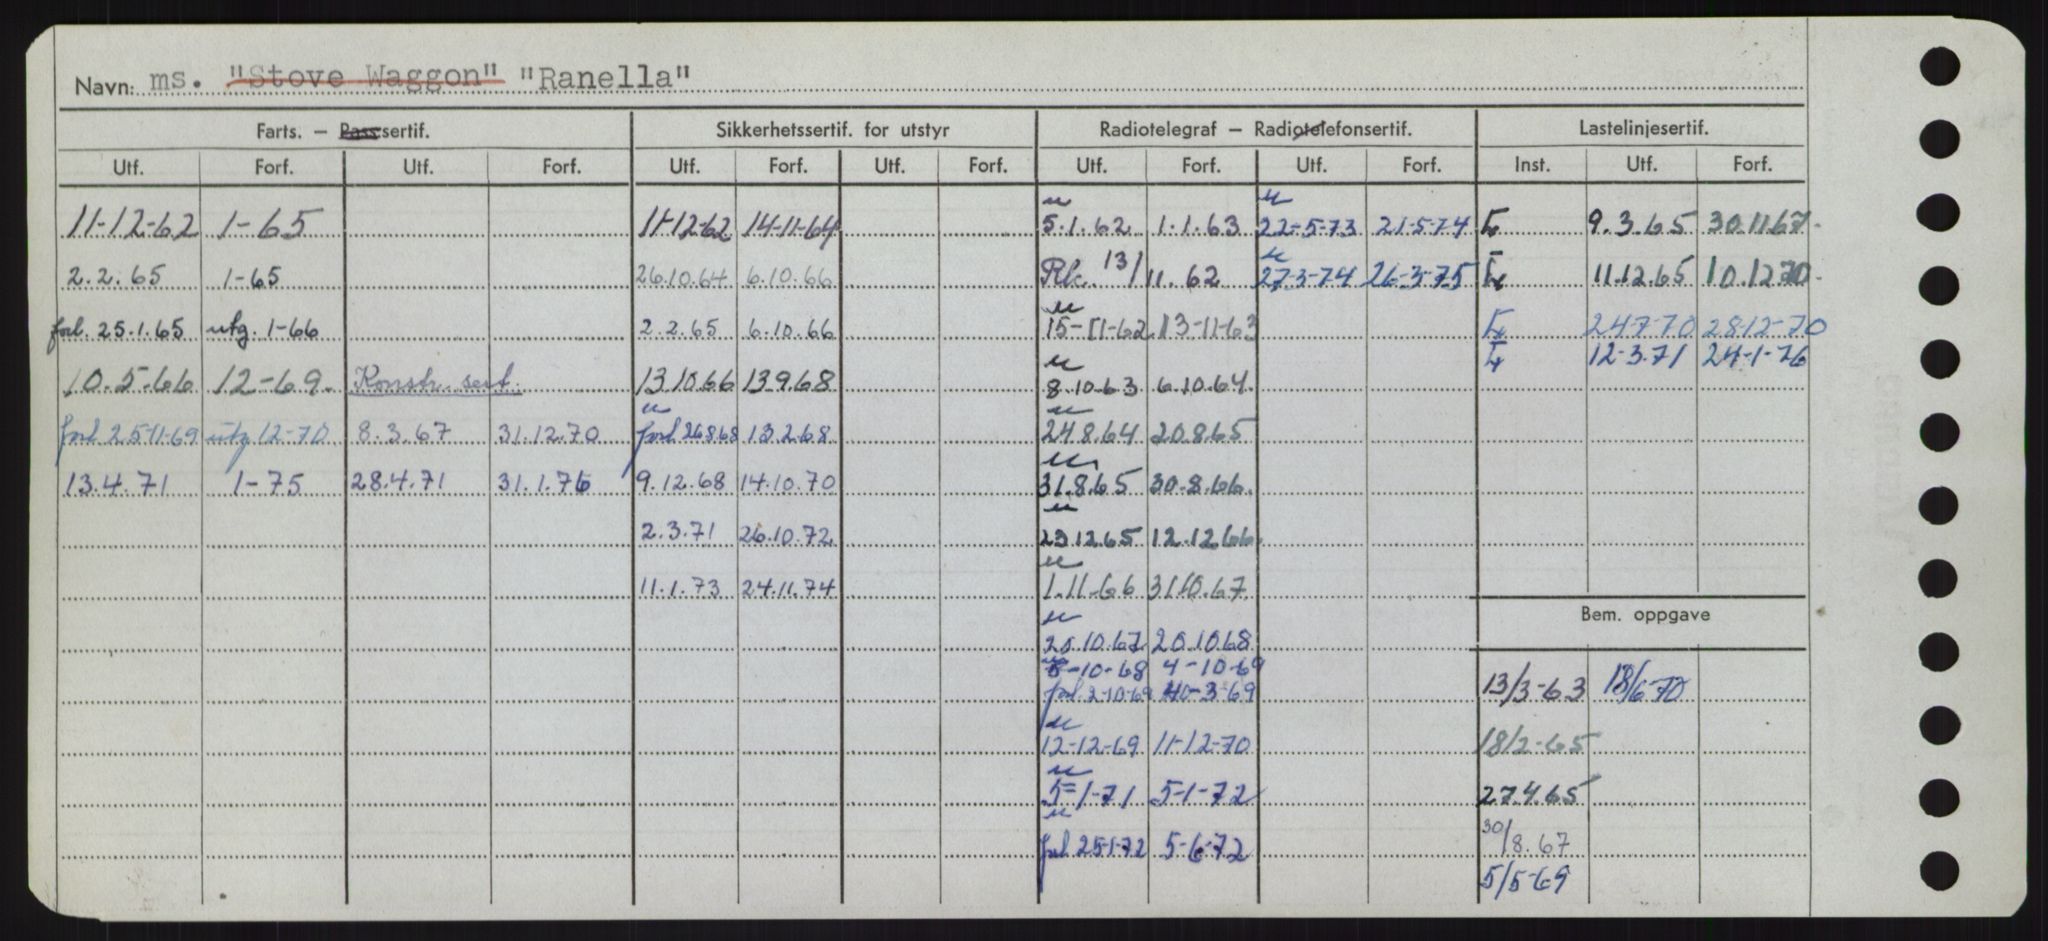 Navn: ms. "Stove Waggon" "Ranella"
Farts. – Passsertif. Sikkerhetssertif. for utstyr Radiotelegraf – Radiotelefonsertif. Lastelinjesertif.
Utf. Forf. Utf. Forf. Utf. Forf. Utf. Forf. Utf. Forf. Utf. Forf. Inst. Utf. Forf.
11-12-62 1-65 11-12-62 14-11-64 5.1.62 1.1.63 22-5-73 21-5-74 9.3.65 30.11.67.
2.2.65 1-65 26.10.64 6.10.66 Rk. 13/11.62 27-3-74 26-3-75 11.12.65 10.12.70.
forl. 25.1.65 utg. 1-66 2.2.65 6.10.66 15-11-62 13-11-63 24-7-70 28-12-70
12-3.71 24-1-76
10.5-66 12-69. Konstr. sert. 13.10.66 13.9.68 8.10.63 6.10.64.
forl 25-11-69 utg 12-70 8.3.67 31.12.70 forl 26.8.68 13.2.68 24.8.64 20.8.65
13.4.71 1-75 28.4.71 31.1.76 9.12.68 14.10.70 31.8.65 30.8.66.
2.3.71 26.10.72 23.12.65 12.12.66.
11.1.73 24.11.74 1.11-66 31.10.67.
Bem. oppgave
20.10.67 20.10.68
8-10-68 4-10-69
forl. 2-10-69 40-3-69 13/3-63 18/6-70
12-12-69 11-12-70 18/2-65
5-1-71 5-1-72 27.4.65
forl 25-1-72 5-6-72 30/8.67
5/5-69